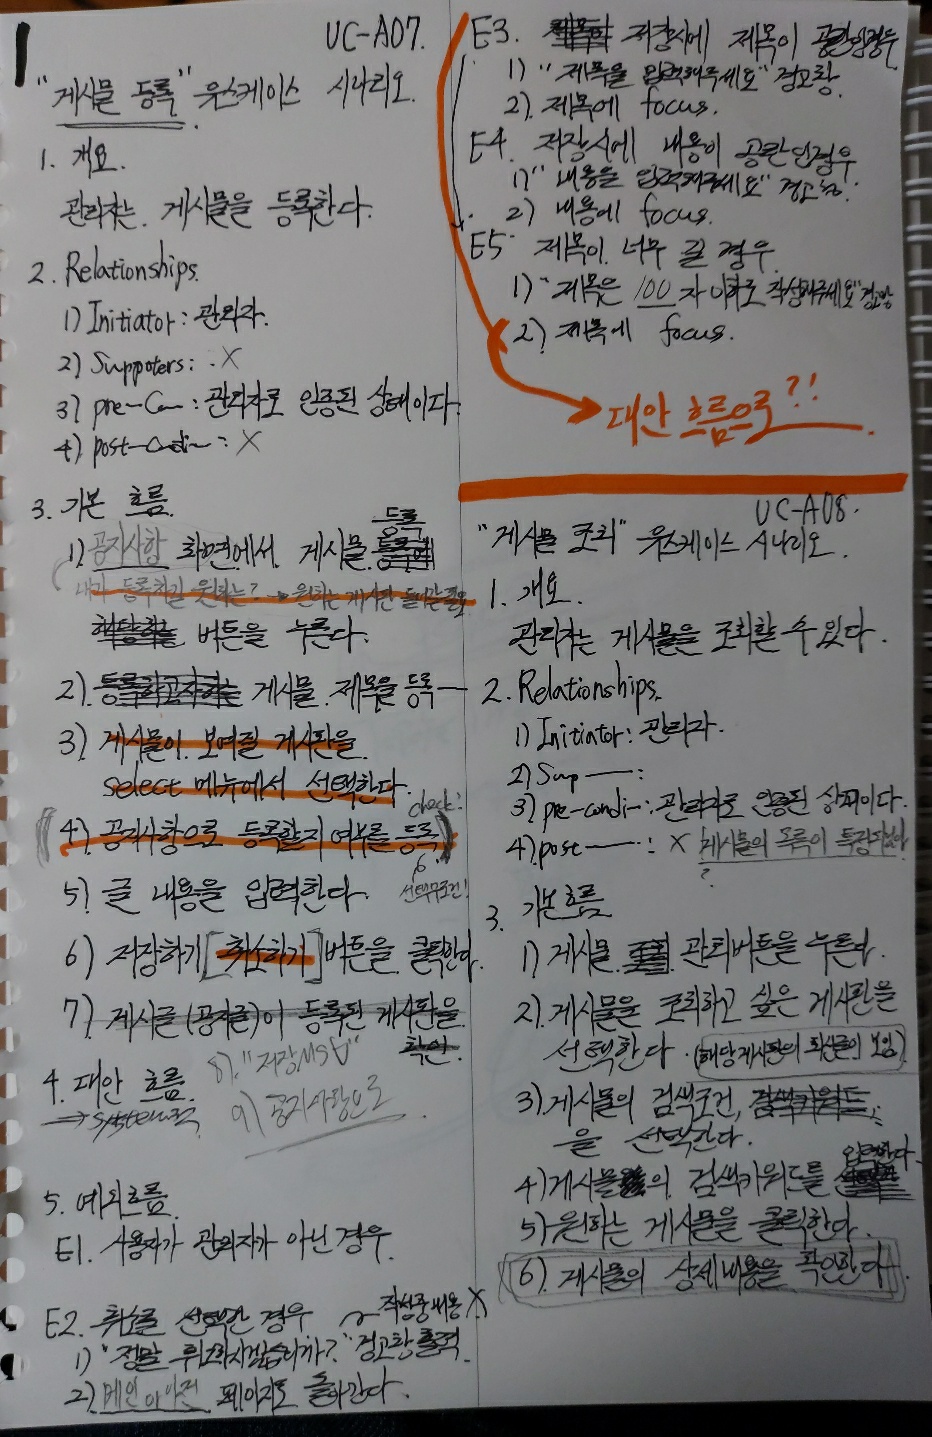 UC-A07.
"게시물 등록" 유스케이스 시나리오.
1. 개요.
관리자는 게시물을 등록한다.
2. Relationships.
1) Initiator: 관리자.
2) Suppoters: X
3) pre-C : 관리자로 인증된 상태이다.
4) post-Condi~: X
3. 기본 흐름.
등록
1) 공지사항 화면에서 게시물
내가 등록하길 원하는? → 원하는 게시판 들어갈 필요
버튼을 누른다.
2) 등록하고자하는 게시물 제목을 등록—
3) 게시물이 보여질 게시판을
select 메뉴에서 선택한다.
check!
(4) 공지사항으로 등록할지 여부를 등록)
5) 글 내용을 입력한다.
6) 저장하기 [취소하기] 버튼을 클릭한다.
7) 게시글(공지글)이 등록된 게시판을
확인.
8). "저장MSG"
9) 공지사항으로
4. 대안 흐름.
→ system
5. 예외흐름.
E1. 사용자가 관리자가 아닌 경우.
E2. 취소를 선택한 경우 ~ 작성중 내용 X
1) "정말 취소하시겠습니까?" 경고창 출력.
2) 페이지로 돌아간다.
E3. 저장시에 제목이 공란인경우
1) "제목을 입력해주세요" 경고창.
2). 제목에 focus.
E4. 저장시에 내용이 공란인경우
1) "내용을 입력해주세요" 경고창.
2) 내용에 focus.
E5 제목이 너무 길 경우.
1) "제목은 100자 이하로 작성해주세요" 경고창
2) 제목에 focus.
대안 흐름으로??!
UC-A08.
"게시물 조회" 유스케이스 시나리오.
1. 개요.
관리자는 게시물을 조회할 수 있다.
2. Relationships.
1) Initiator: 관리자.
2) Sup — :
3) pre-condi-: 관리자로 인증된 상태이다.
4) post — : X 게시물의 목록이
?
3. 기본흐름
1) 게시물 관리버튼을 누른다.
2). 게시물을 조회하고 싶은 게시판을
선택한다. (해당게시판의 최신글이 보임)
3) 게시물의 검색조건, 검색키워드
을 선택한다.
입력한다.
4) 게시물의 검색키워드를
5) 원하는 게시물을 클릭한다.
6). 게시물의 상세내용을 확인한다.